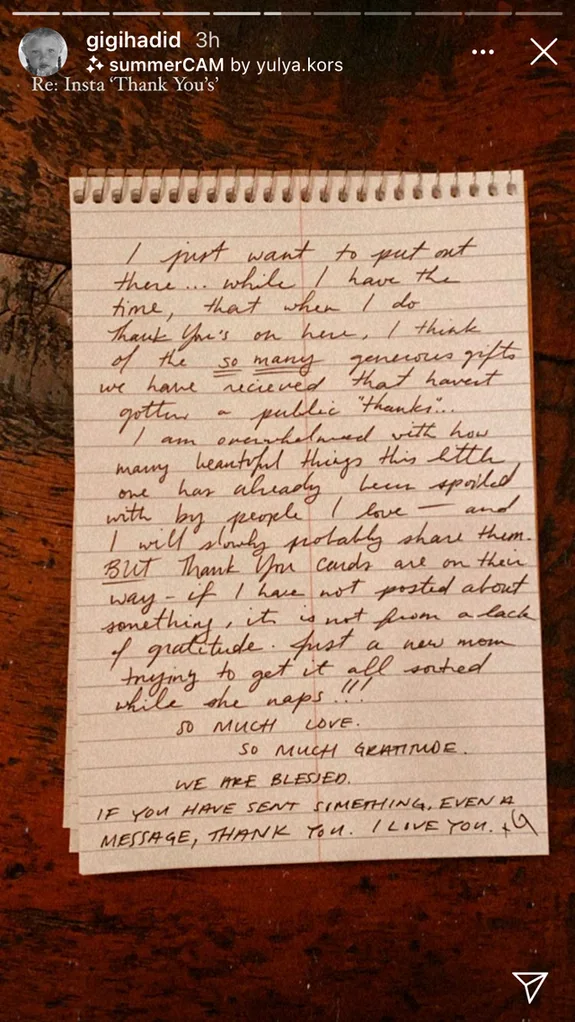 gigihadid 3h
✨ summerCAM by yulya.kors
Re: Insta ‘Thank You’s’
I just want to put out
there... while I have the
time, that when I do
Thank You's on here, I think
of the so many generous gifts
we have recieved that havent
gotten a public "thanks"...
I am overwhelmed with how
many beautiful things this little
one has already been spoiled
with by people I love — and
I will slowly probably share them.
BUT Thank You cards are on their
way - if I have not posted about
something, it is not from a lack
of gratitude. Just a new mom
trying to get it all sorted
while she naps!!!
SO MUCH LOVE.
SO MUCH GRATITUDE.
WE ARE BLESSED.
IF YOU HAVE SENT SOMETHING, EVEN A
MESSAGE, THANK YOU. I LOVE YOU. xG